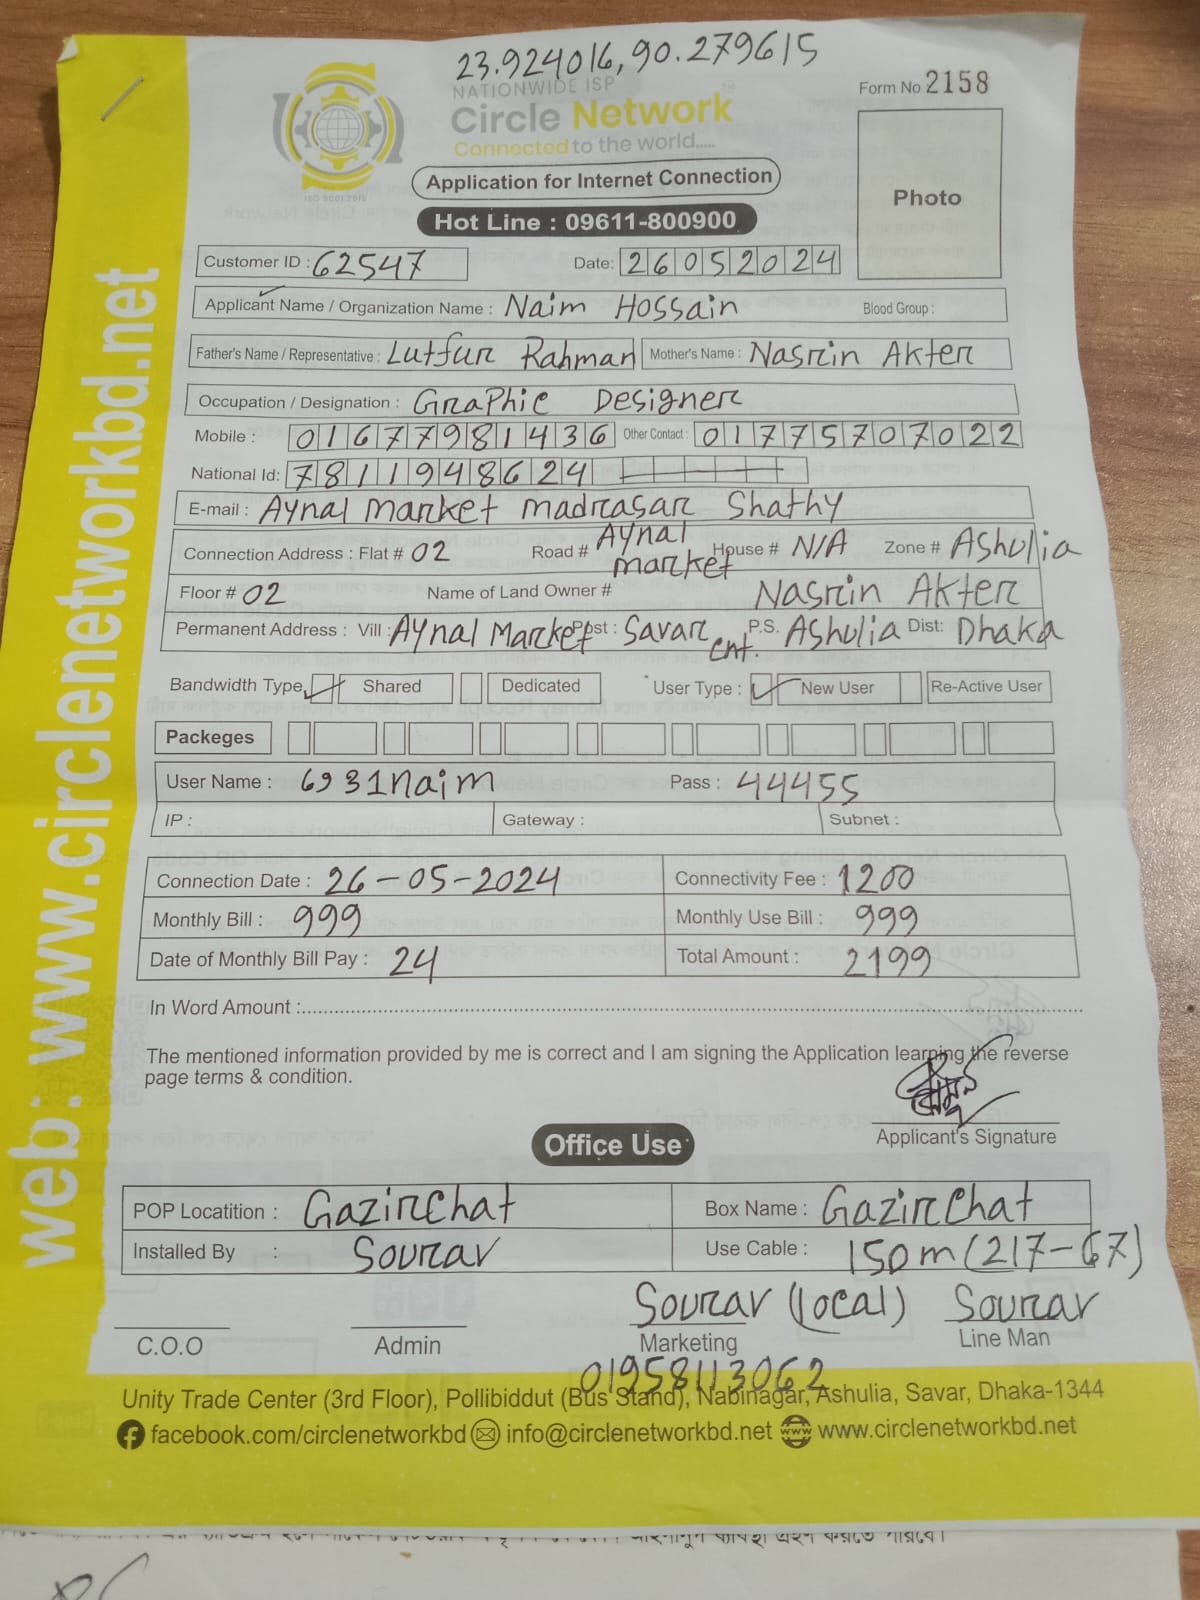 23.924016, 90.279615
NATIONWIDE ISP
Circle Network
Connected to the world.....
ISO 9001:2015
Form No 2158
Photo
Application for Internet Connection
Hot Line : 09611-800900
Customer ID : 62547 Date: 26052024
Applicant Name / Organization Name : Naim Hossain Blood Group :
Father's Name / Representative : Lutfur Rahman Mother's Name : Nasrin Akter
Occupation / Designation : GraPhic Designer
Mobile : 01677981436 Other Contact : 01775707022
National Id: 7811948624
E-mail : Aynal market madrasar Shathy
Connection Address : Flat # 02 Road # Aynal market House # N/A Zone # Ashulia
Floor # 02 Name of Land Owner # Nasrin Akter
Permanent Address : Vill : Aynal Market Post : Savar Cnt. P.S. Ashulia Dist: Dhaka
Bandwidth Type Shared Dedicated User Type : New User Re-Active User
Packeges
User Name : 6931naim Pass : 44455
IP : Gateway : Subnet :
Connection Date : 26-05-2024 Connectivity Fee : 1200
Monthly Bill : 999 Monthly Use Bill : 999
Date of Monthly Bill Pay : 24 Total Amount : 2199
In Word Amount :
The mentioned information provided by me is correct and I am signing the Application learning the reverse
page terms & condition.
Applicant's Signature
Office Use
POP Locatition : Gazirchat Box Name : Gazirchat
Installed By : Sourav Use Cable : 150m (217-67)
Sourav (local) Sourav
C.O.O Admin Marketing Line Man
01958113062
Unity Trade Center (3rd Floor), Pollibiddut (Bus Stand), Nabinagar, Ashulia, Savar, Dhaka-1344
facebook.com/circlenetworkbd info@circlenetworkbd.net www.circlenetworkbd.net
web: www.circlenetworkbd.net